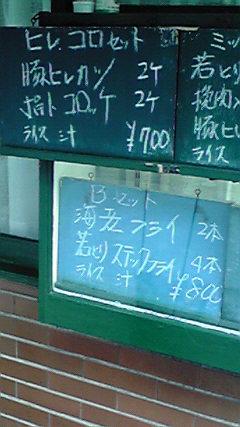 ヒレコロセット
豚ヒレカツ 2ケ
ポテトコロッケ 2ケ
ライス 汁 ¥700
ミッ
若とり
挽肉
豚ヒレ
ライス
Bセット
海老フライ 2本
若とりスティックフライ 4本
ライス 汁 ¥800